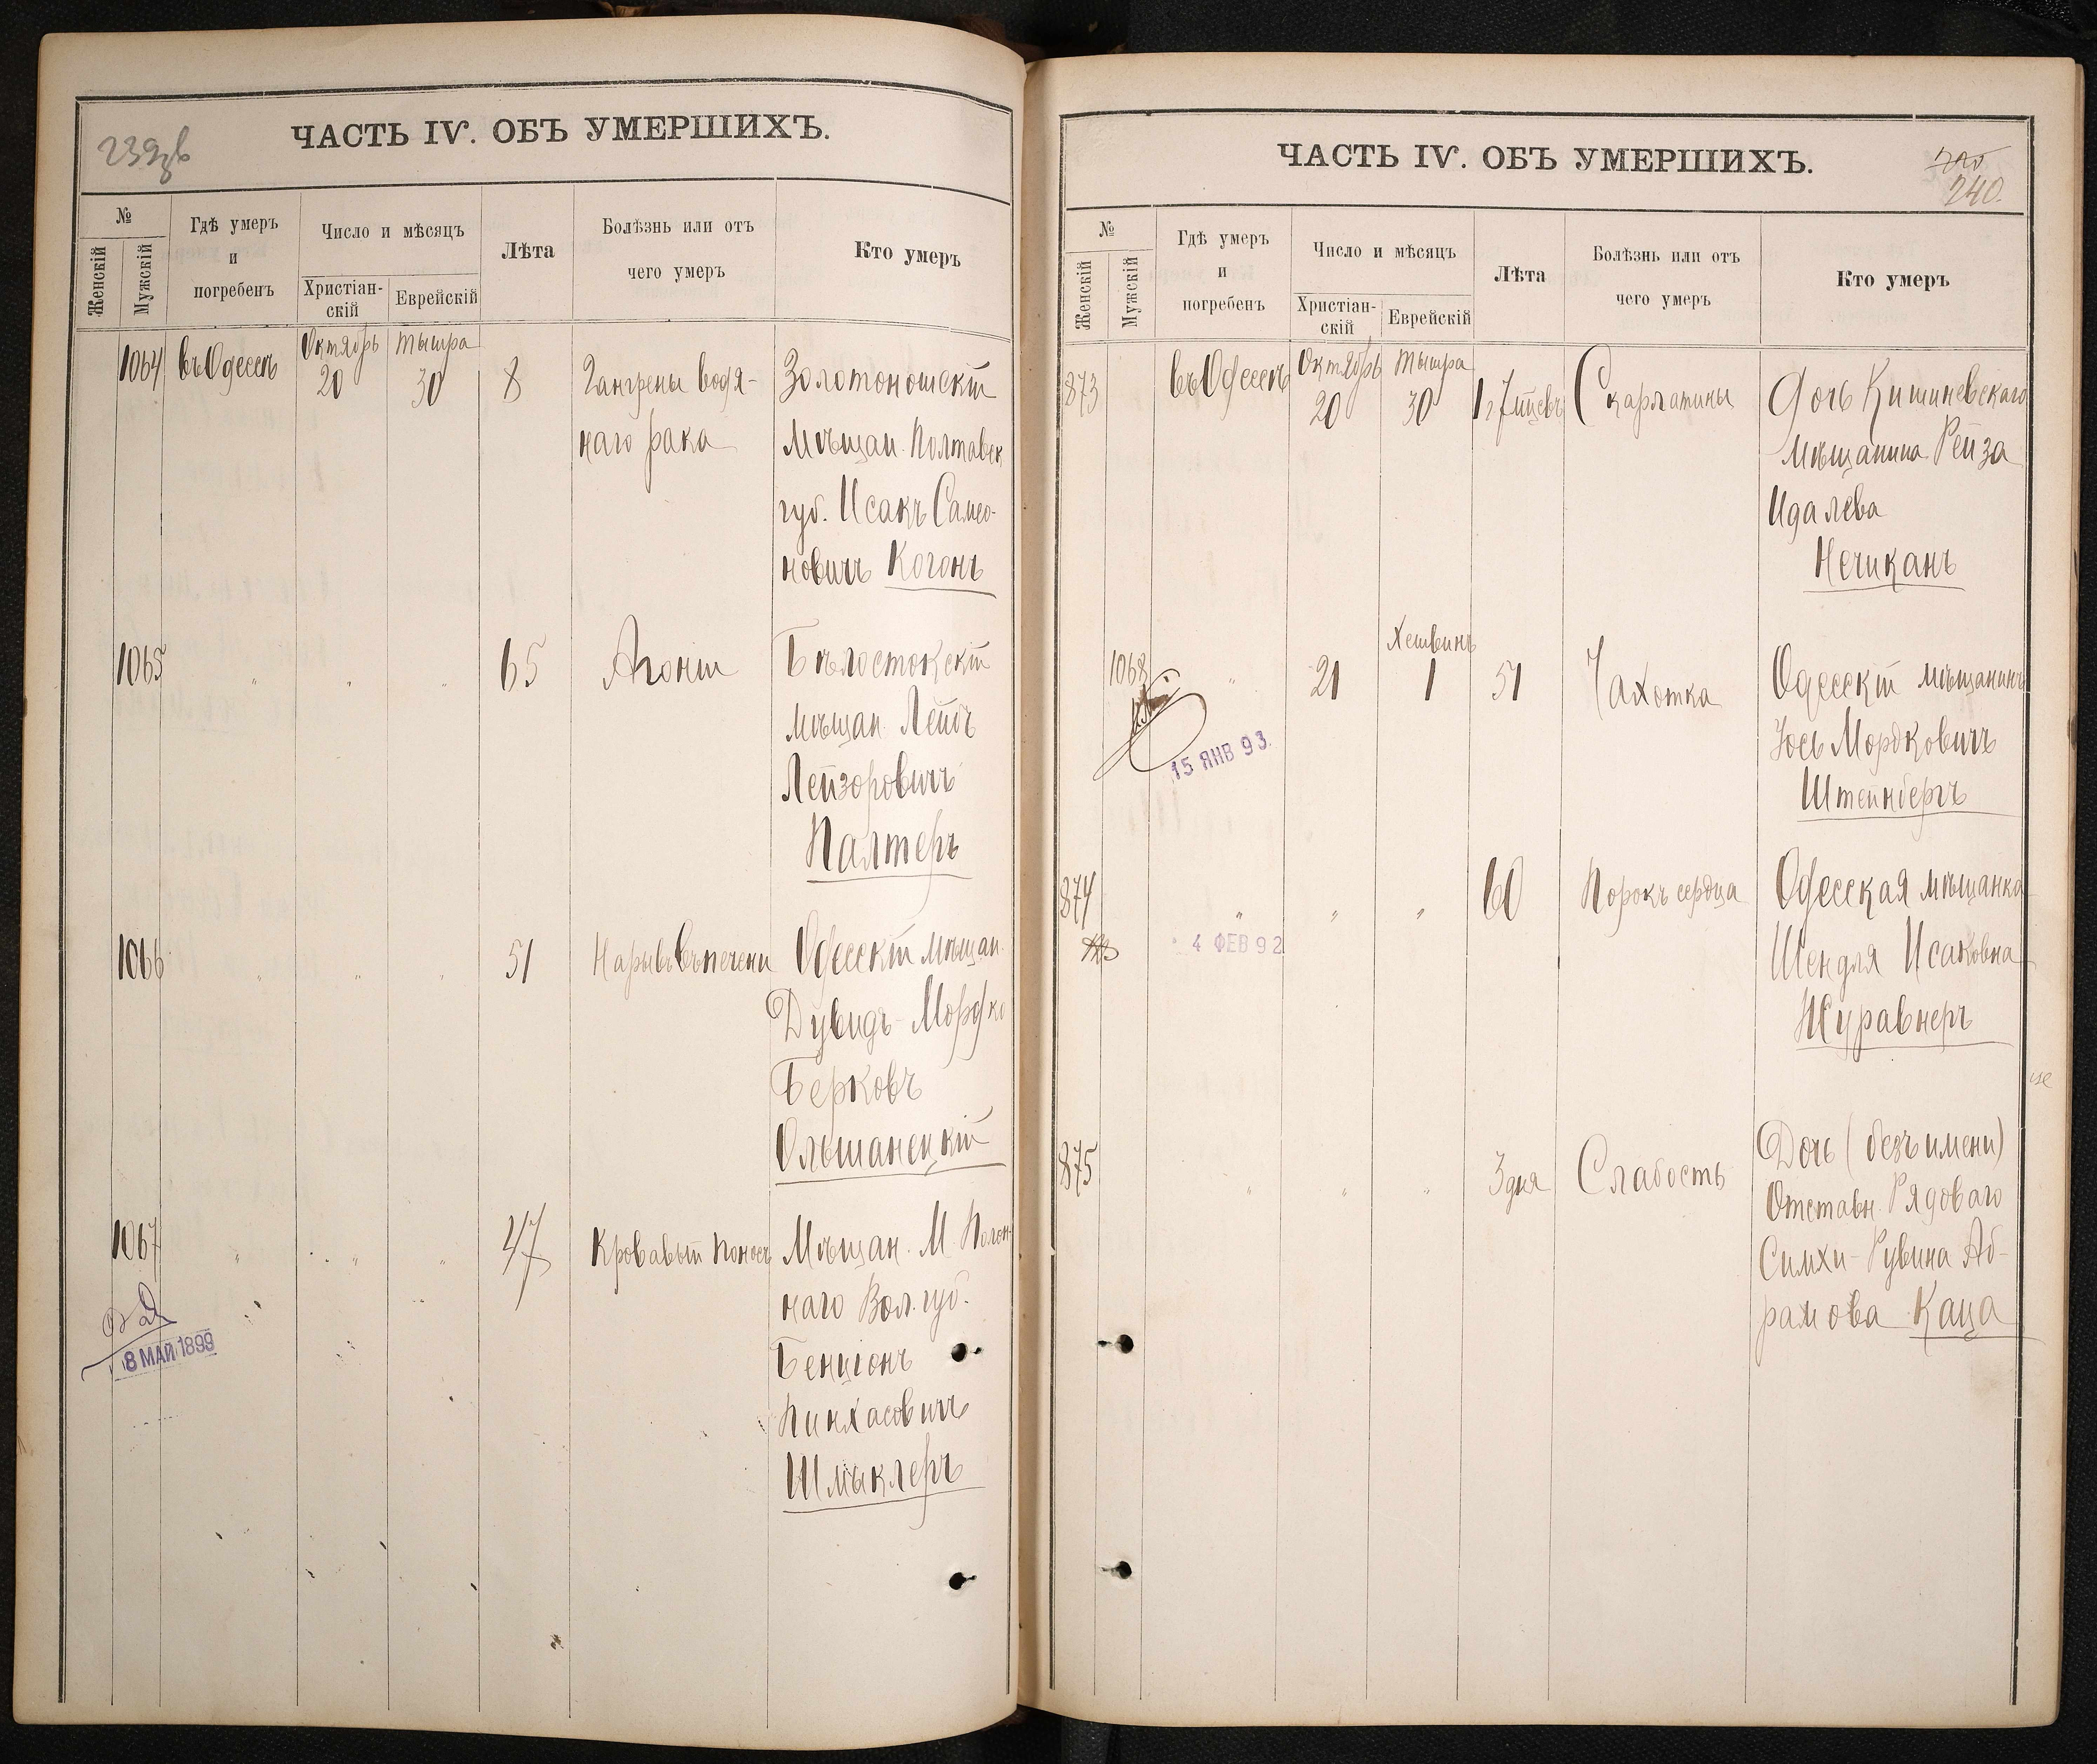 239об
ЧАСТЬ IV. ОБЪ УМЕРШИХЪ.
№
Женскій
Мужскій
Гдѣ умеръ и погребенъ
Число и мѣсяцъ
Христіан-
скій
Еврейскій
Лѣта
Болѣзнь или отъ
чего умеръ
Кто умеръ
1064 въ Одессѣ Октябрь 20 Тышра 30 8 Гангрены водя-
наго рака
Золотоношскій
Мѣщан. Полтавск
губ. Исакъ Самсо-
новичъ Когонъ
1065 " " " 65 Агонія
Бѣлостокскій
мѣщан. Лейбъ
Лейзоровичъ
Палтеръ
1066 " " " 51 Нарывъ въ печени
Одесскій мѣщан.
Дувидъ-Мордко
Берковъ
Ольшанецкій
1067 " " " 47 Кровавый поносъ
Мѣщан. М. Полон-
наго Вол. губ.
Бенціонъ
Пинхасовичъ
Шмыклеръ
8 МАЙ 1899
240.
ЧАСТЬ IV. ОБЪ УМЕРШИХЪ.
№
Женскій
Мужскій
Гдѣ умеръ
и
погребенъ
Число и мѣсяцъ
Христіан-
скій
Еврейскій
Лѣта
Болѣзнь или отъ
чего умеръ
Кто умеръ
873 въ Одессѣ Октябрь 20 Тышра 30 1 г 7 мцевъ Скарлатины
Дочь Кишиневскаго
Мѣщанина Рейза
Идалева
Нечиканъ
1068 " 21 Хешвинъ 1 51 Чахотка
Одесскій мѣщанинъ
Іось Мордковичъ
Штейнбергъ
15 ЯНВ 93.
874 " " " 60 Порокъ сердца
Одесская мѣщанка
Шендля Исаковна
Журавнеръ
4 ФЕВ 92
875 " " " 3 дня Слабость
Дочь (безъ имени)
Отставн. Рядоваго
Симхи-Рувина Аб-
рамова Каца